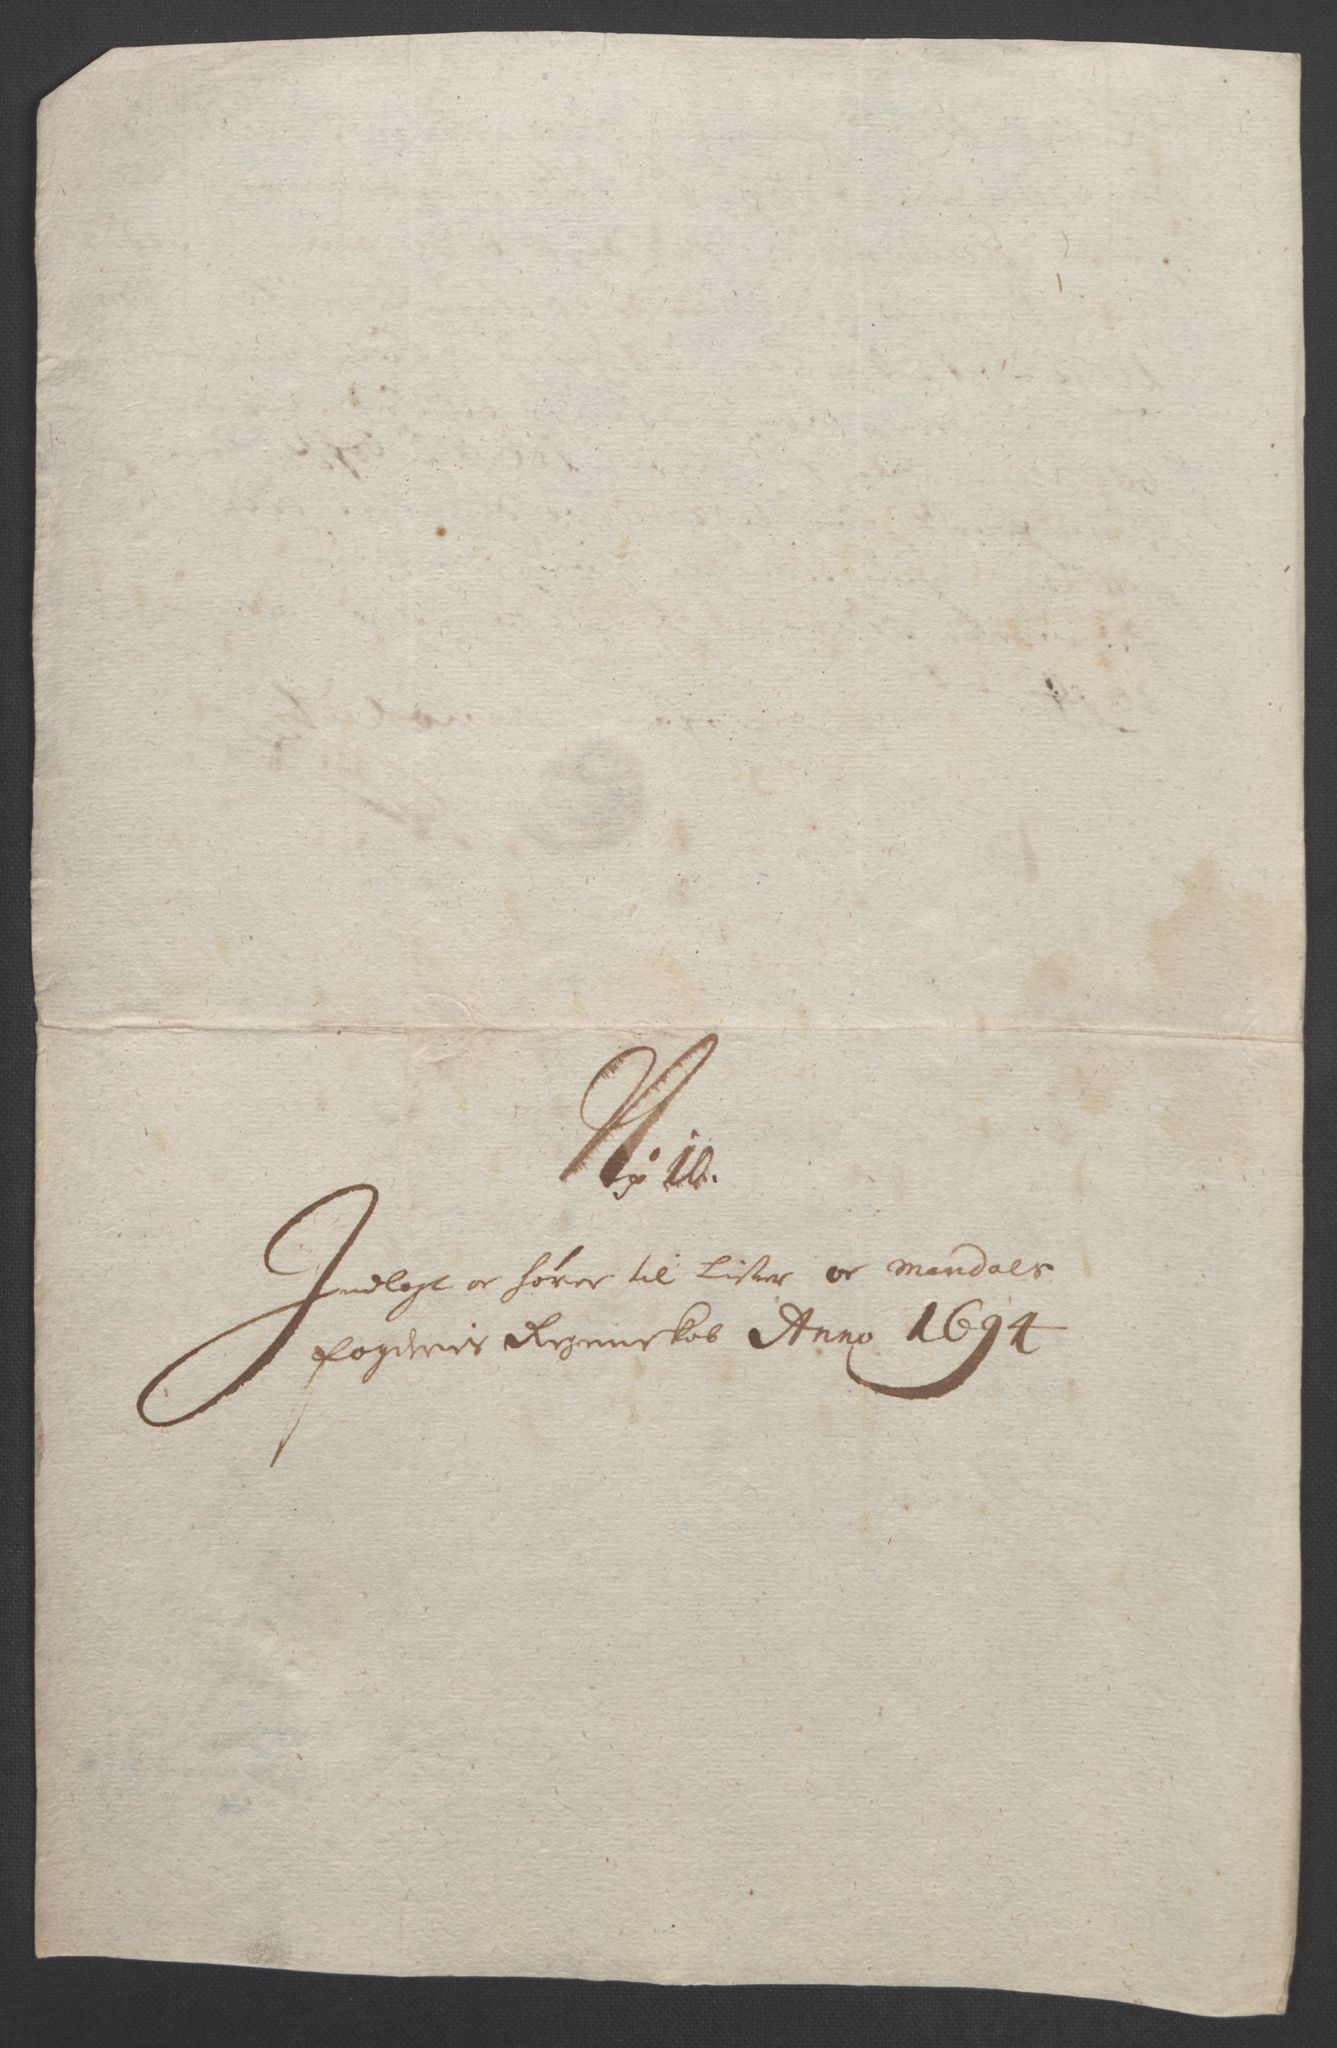 No 16.
Indlagt oc hører til Lister oc Mandals
fogderies Regenskab Anno 1694